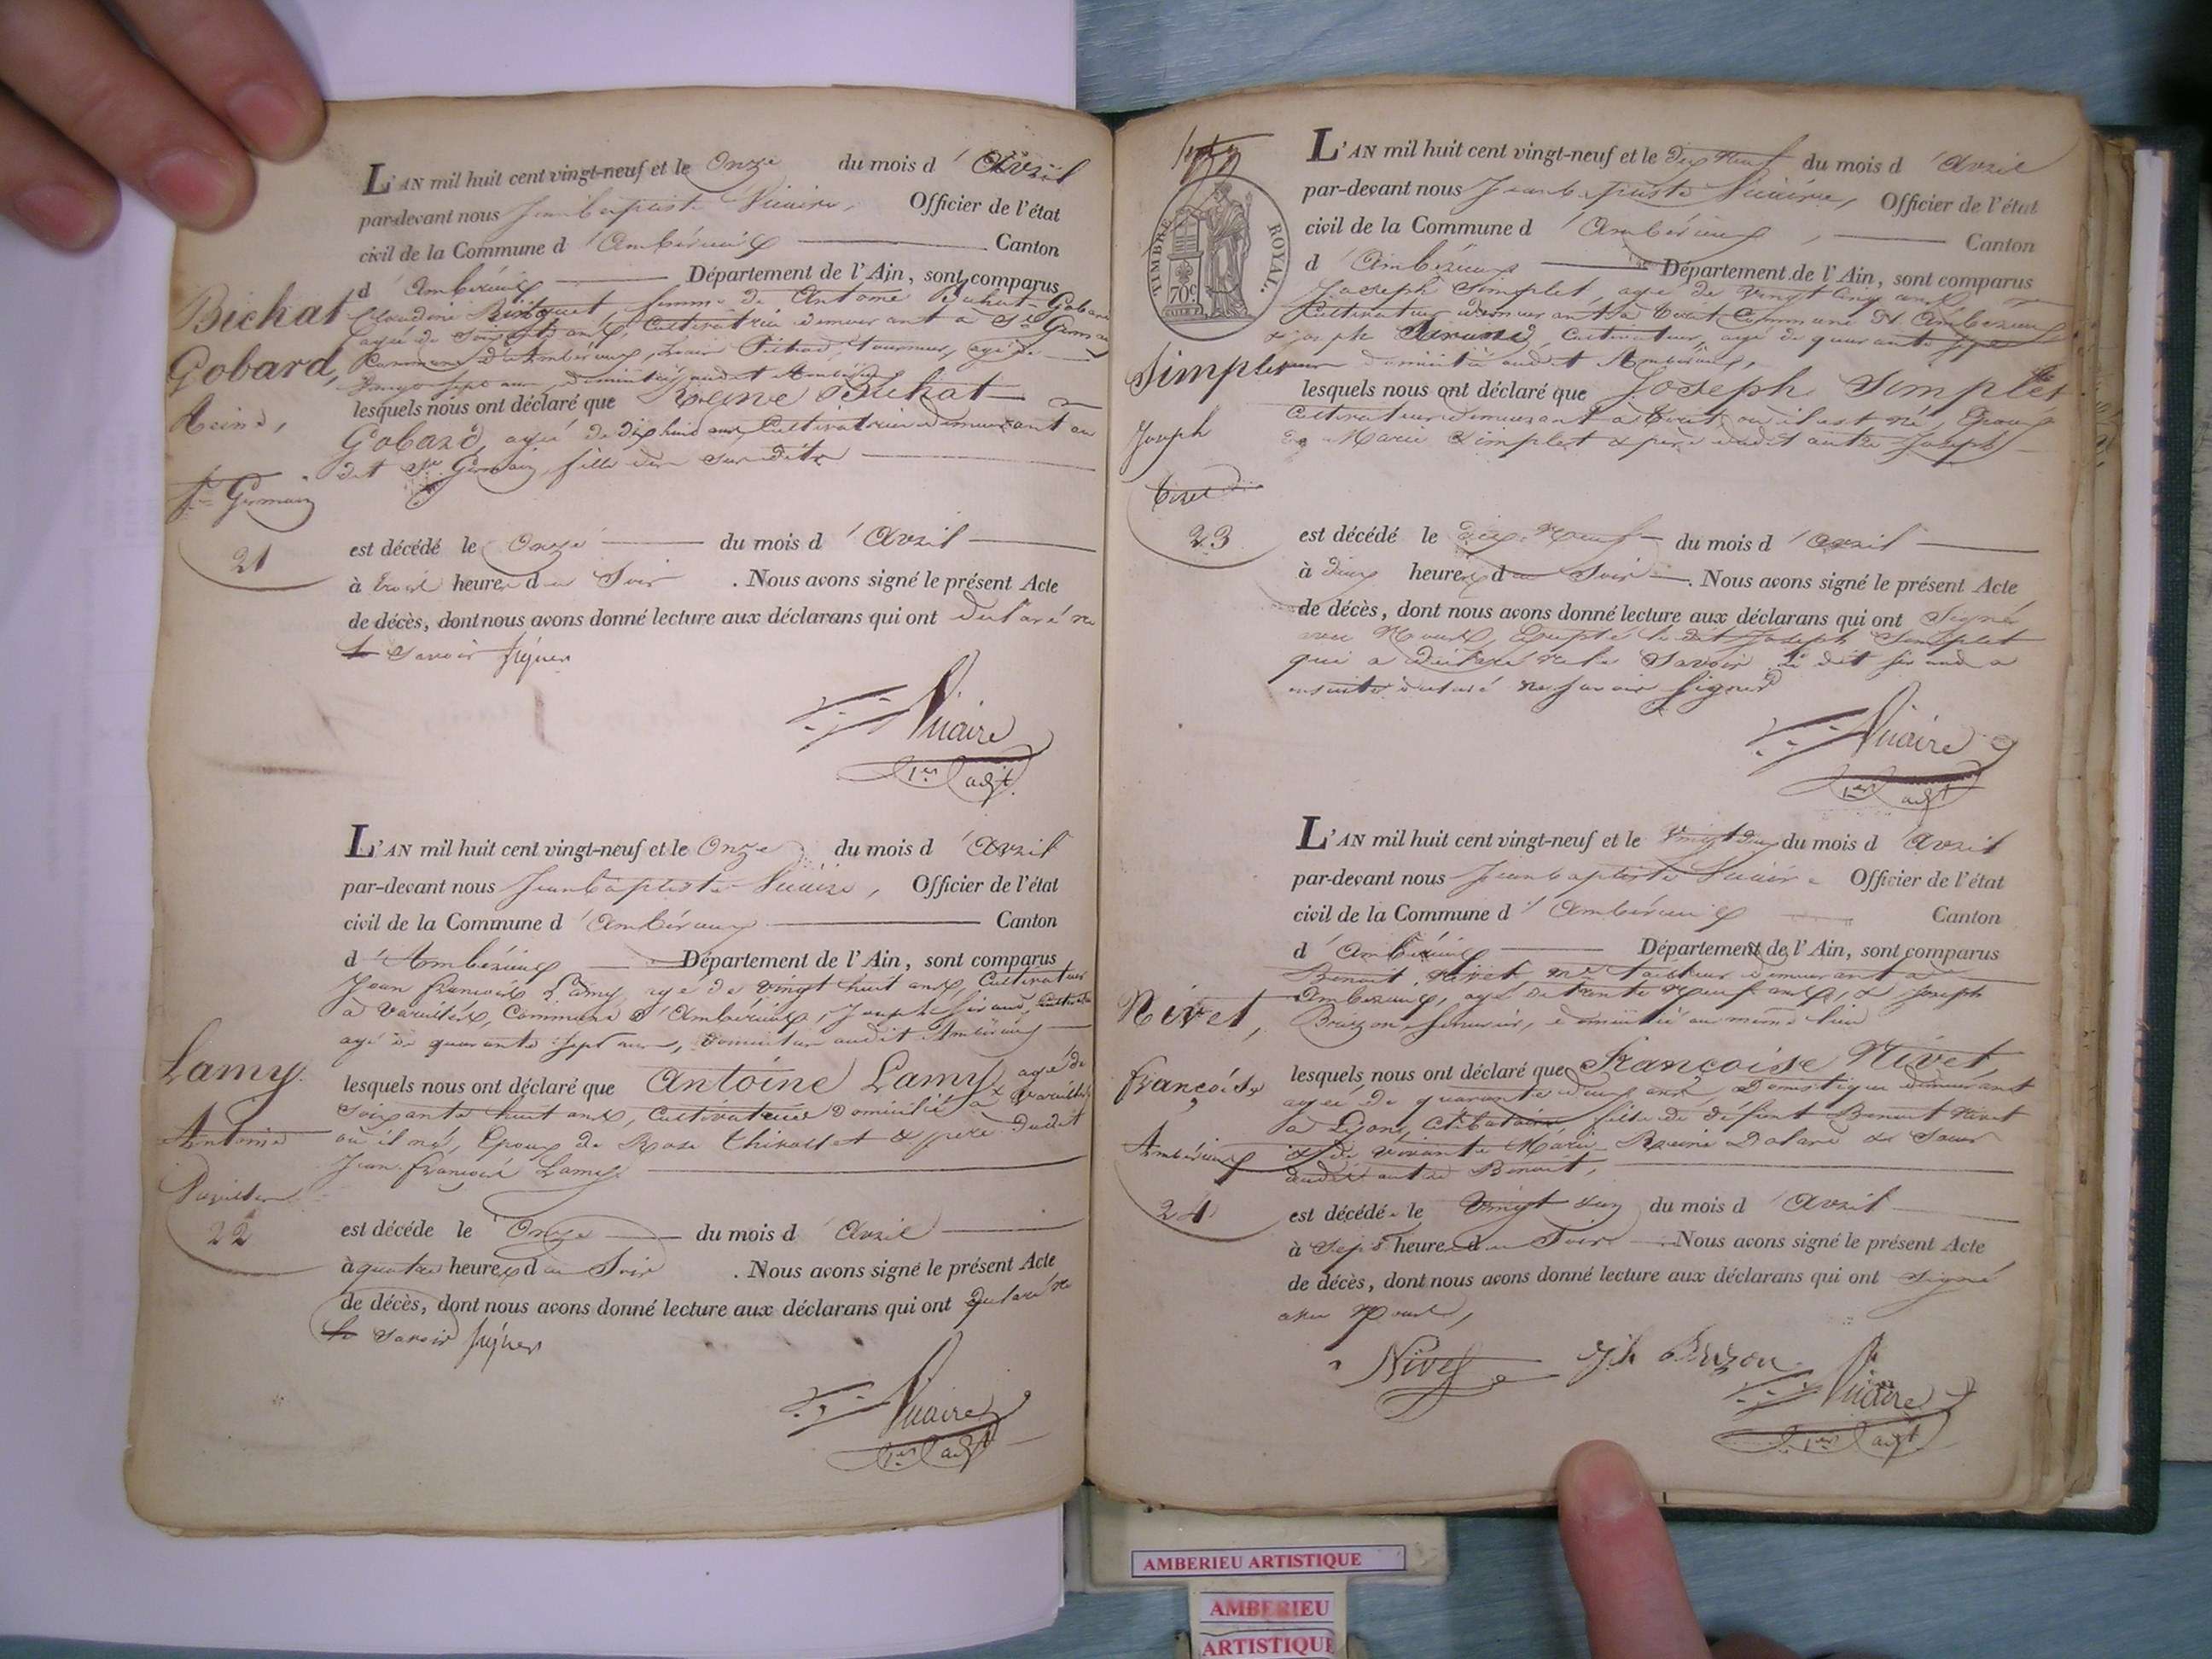 L'AN mil huit cent vingt-neuf et le Onze du mois d'Avril
par-devant nous Jean baptiste Vicaire, Officier de l'état
civil de la Commune d'Ambérieux Canton
d'Ambérieux Département de l'Ain, sont comparus
femme de Antoine Bichat-Gobard
agée de Cultivatrice demeurant à St Germain
Commune d'Ambérieux, tourneur, agé de
vingt sept ans, domicilié audit Ambérieux
lesquels nous ont déclaré que Reine Bichat
Gobard, agée de dix huit ans, Cultivatrice demeurant au
dit St Germain, fille des sus dits
est décédé le Onze du mois d'Avril
à trois heures du Soir. Nous avons signé le présent Acte
de décès, dont nous avons donné lecture aux déclarans qui ont déclaré ne
le savoir signer
Vicaire
1er adjt
Bichat
Gobard,
Reine,
St Germain
21
L'AN mil huit cent vingt-neuf et le Onze du mois d'Avril
par-devant nous Jean baptiste Vicaire, Officier de l'état
civil de la Commune d'Ambérieux Canton
d'Ambérieux Département de l'Ain, sont comparus
Jean françois Lamy, agé de vingt huit ans, Cultivateur
à Vareilles, Commune d'Ambérieux, Joseph
agé de quarante sept ans, domicilié audit Ambérieux
lesquels nous ont déclaré que Antoine Lamy agé de
soixante huit ans, Cultivateur domicilié à Vareilles
où il né, Epoux de Rose & père dudit
Jean françois Lamy
est décédé le Onze du mois d'Avril
à quatre heures du Soir. Nous avons signé le présent Acte
de décès, dont nous avons donné lecture aux déclarans qui ont déclaré ne
le savoir signer
Vicaire
1er adjt
Lamy
Antoine
22
TIMBRE ROYAL.
70c
L'AN mil huit cent vingt-neuf et le dix Neuf du mois d'Avril
par-devant nous Jean baptiste Vicaire, Officier de l'état
civil de la Commune d'Ambérieux, Canton
d'Ambérieux Département de l'Ain, sont comparus
Joseph Simplet, agé de vingt cinq ans
Cultivateur demeurant à Commune d'Ambérieux
& joseph Cultivateur, agé de quarante sept
domicilié audit Ambérieux,
lesquels nous ont déclaré que Joseph Simplet
Cultivateur demeurant à où il est né, Epoux
de Marie Simplet & père dudit autre Joseph
est décédé le dix Neuf du mois d'Avril
à deux heures du Soir. Nous avons signé le présent Acte
de décès, dont nous avons donné lecture aux déclarans qui ont Signé
avec Nous, Excepté le dit Joseph Simplet
qui a déclaré ne le Savoir le dit a
ensuite déclaré ne savoir signer
Vicaire
1er adjt
Simplet
Joseph
23
L'AN mil huit cent vingt-neuf et le Vingt deux du mois d'Avril
par-devant nous Jean baptiste Vicaire Officier de l'état
civil de la Commune d'Ambérieux Canton
d'Ambérieux Département de l'Ain, sont comparus
Benoit Nivet demeurant à
Ambérieux, agé de trente neuf ans, & Joseph
Brizon domicilié au même lieu
lesquels nous ont déclaré que Françoise Nivet,
agée de quarante deux ans, Domestique demeurant
à Lyon, Célibataire, fille de défunt Benoit Nivet
& de vivante Marie Reine & Sœur
audit autre Benoit,
est décédé le Vingt du mois d'Avril
à Sept heures du Soir Nous avons signé le présent Acte
de décès, dont nous avons donné lecture aux déclarans qui ont Signé
avec Nous,
Nivet Jh Brizon
Vicaire
1er adjt
Nivet,
françoise
Ambérieux
24
AMBERIEU ARTISTIQUE
AMBERIEU
ARTISTIQUE